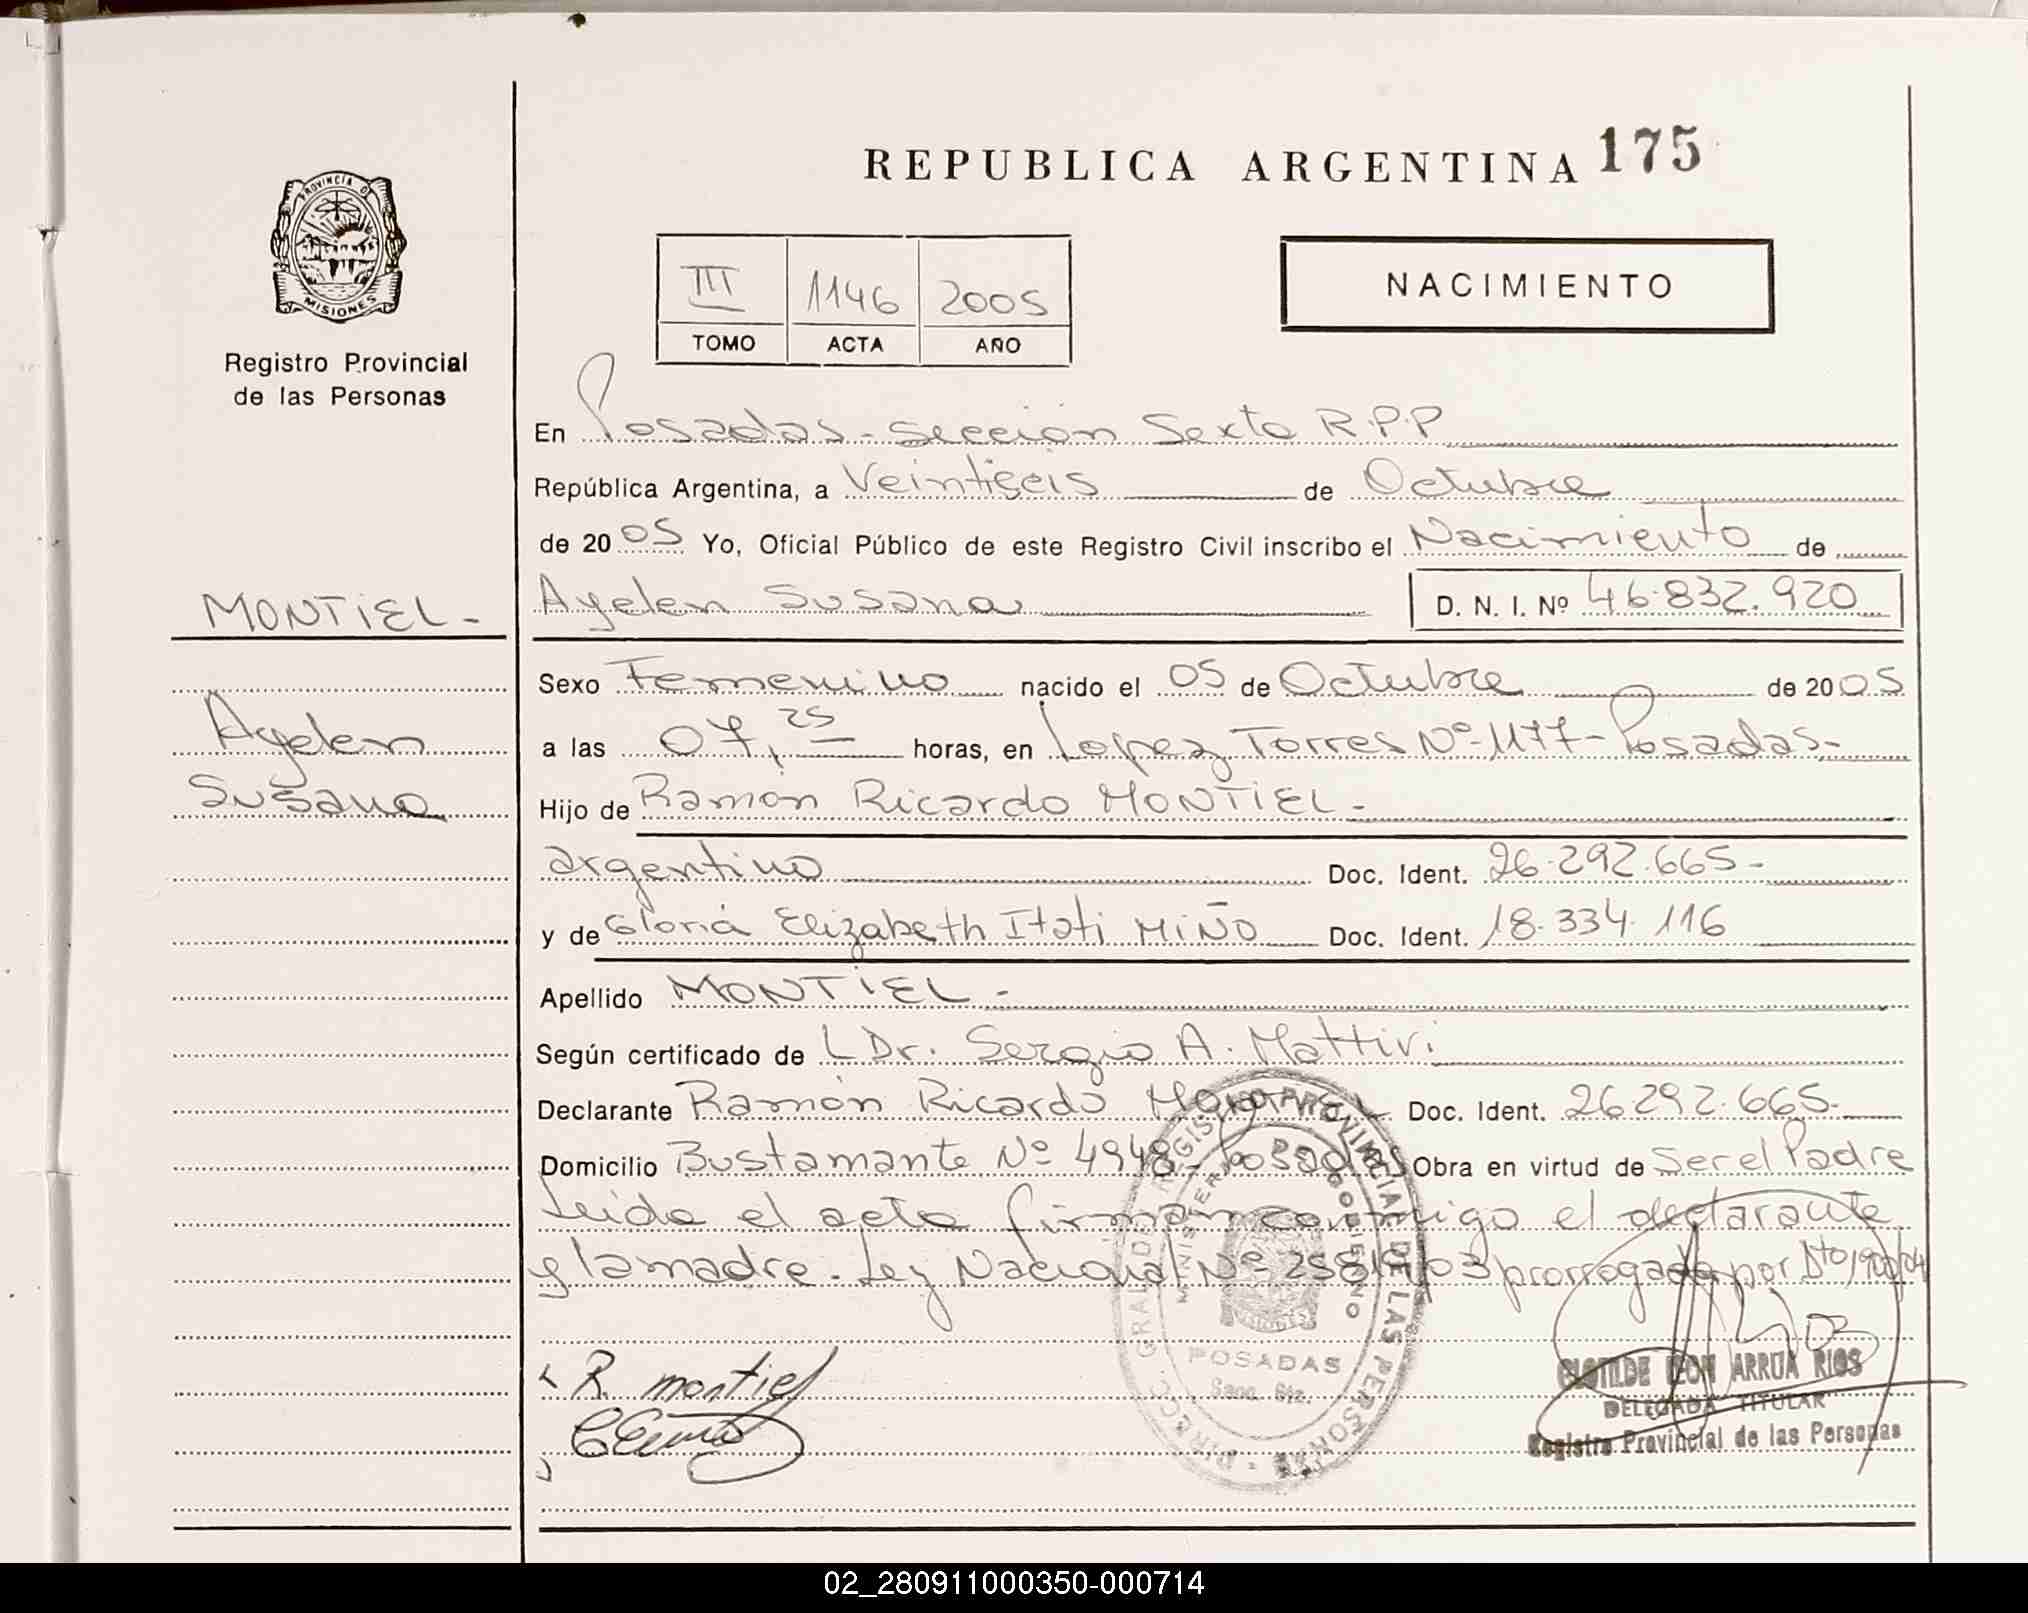 REPUBLICA ARGENTINA 175
PROVINCIA DE
MISIONES
Registro Provincial
de las Personas
III 1146 2005
TOMO ACTA AÑO
NACIMIENTO
En Posadas - Sección Sexta R.P.P
República Argentina, a Veintiseis de Octubre
de 2005 Yo, Oficial Público de este Registro Civil inscribo el Nacimiento de
MONTIEL -
Ayelen Susana D. N. I. Nº 46.832.920
Sexo Femenino nacido el 05 de Octubre de 2005
Ayelen
a las 07,25 horas, en Lopez Torres Nº 1177 - Posadas -
Susana
Hijo de Ramón Ricardo MONTIEL -
argentino Doc. Ident. 26.292.665 -
y de Gloria Elizabeth Itati MIÑO Doc. Ident. 18.334.116
Apellido MONTIEL -
Según certificado de Dr. Sergio A. Mattivi
Declarante Ramón Ricardo MONTIEL Doc. Ident. 26292.665 -
Domicilio Bustamante Nº 4948 - Posadas Obra en virtud de Ser el Padre
Leida el acta firman conmigo el declarante
y la madre. Ley Nacional Nº 25819/03 prorrogada por Dto 1900/04
R. montiel
DIRECC. GRAL. DE REGISTRO PROVINCIAL DE LAS PERSONAS
MINISTERIO DE GOBIERNO
MISIONES
POSADAS
Secc. 6ta.
CLOTILDE ARRUA RIOS
DELEGADA TITULAR
Registro Provincial de las Personas
02_280911000350-000714